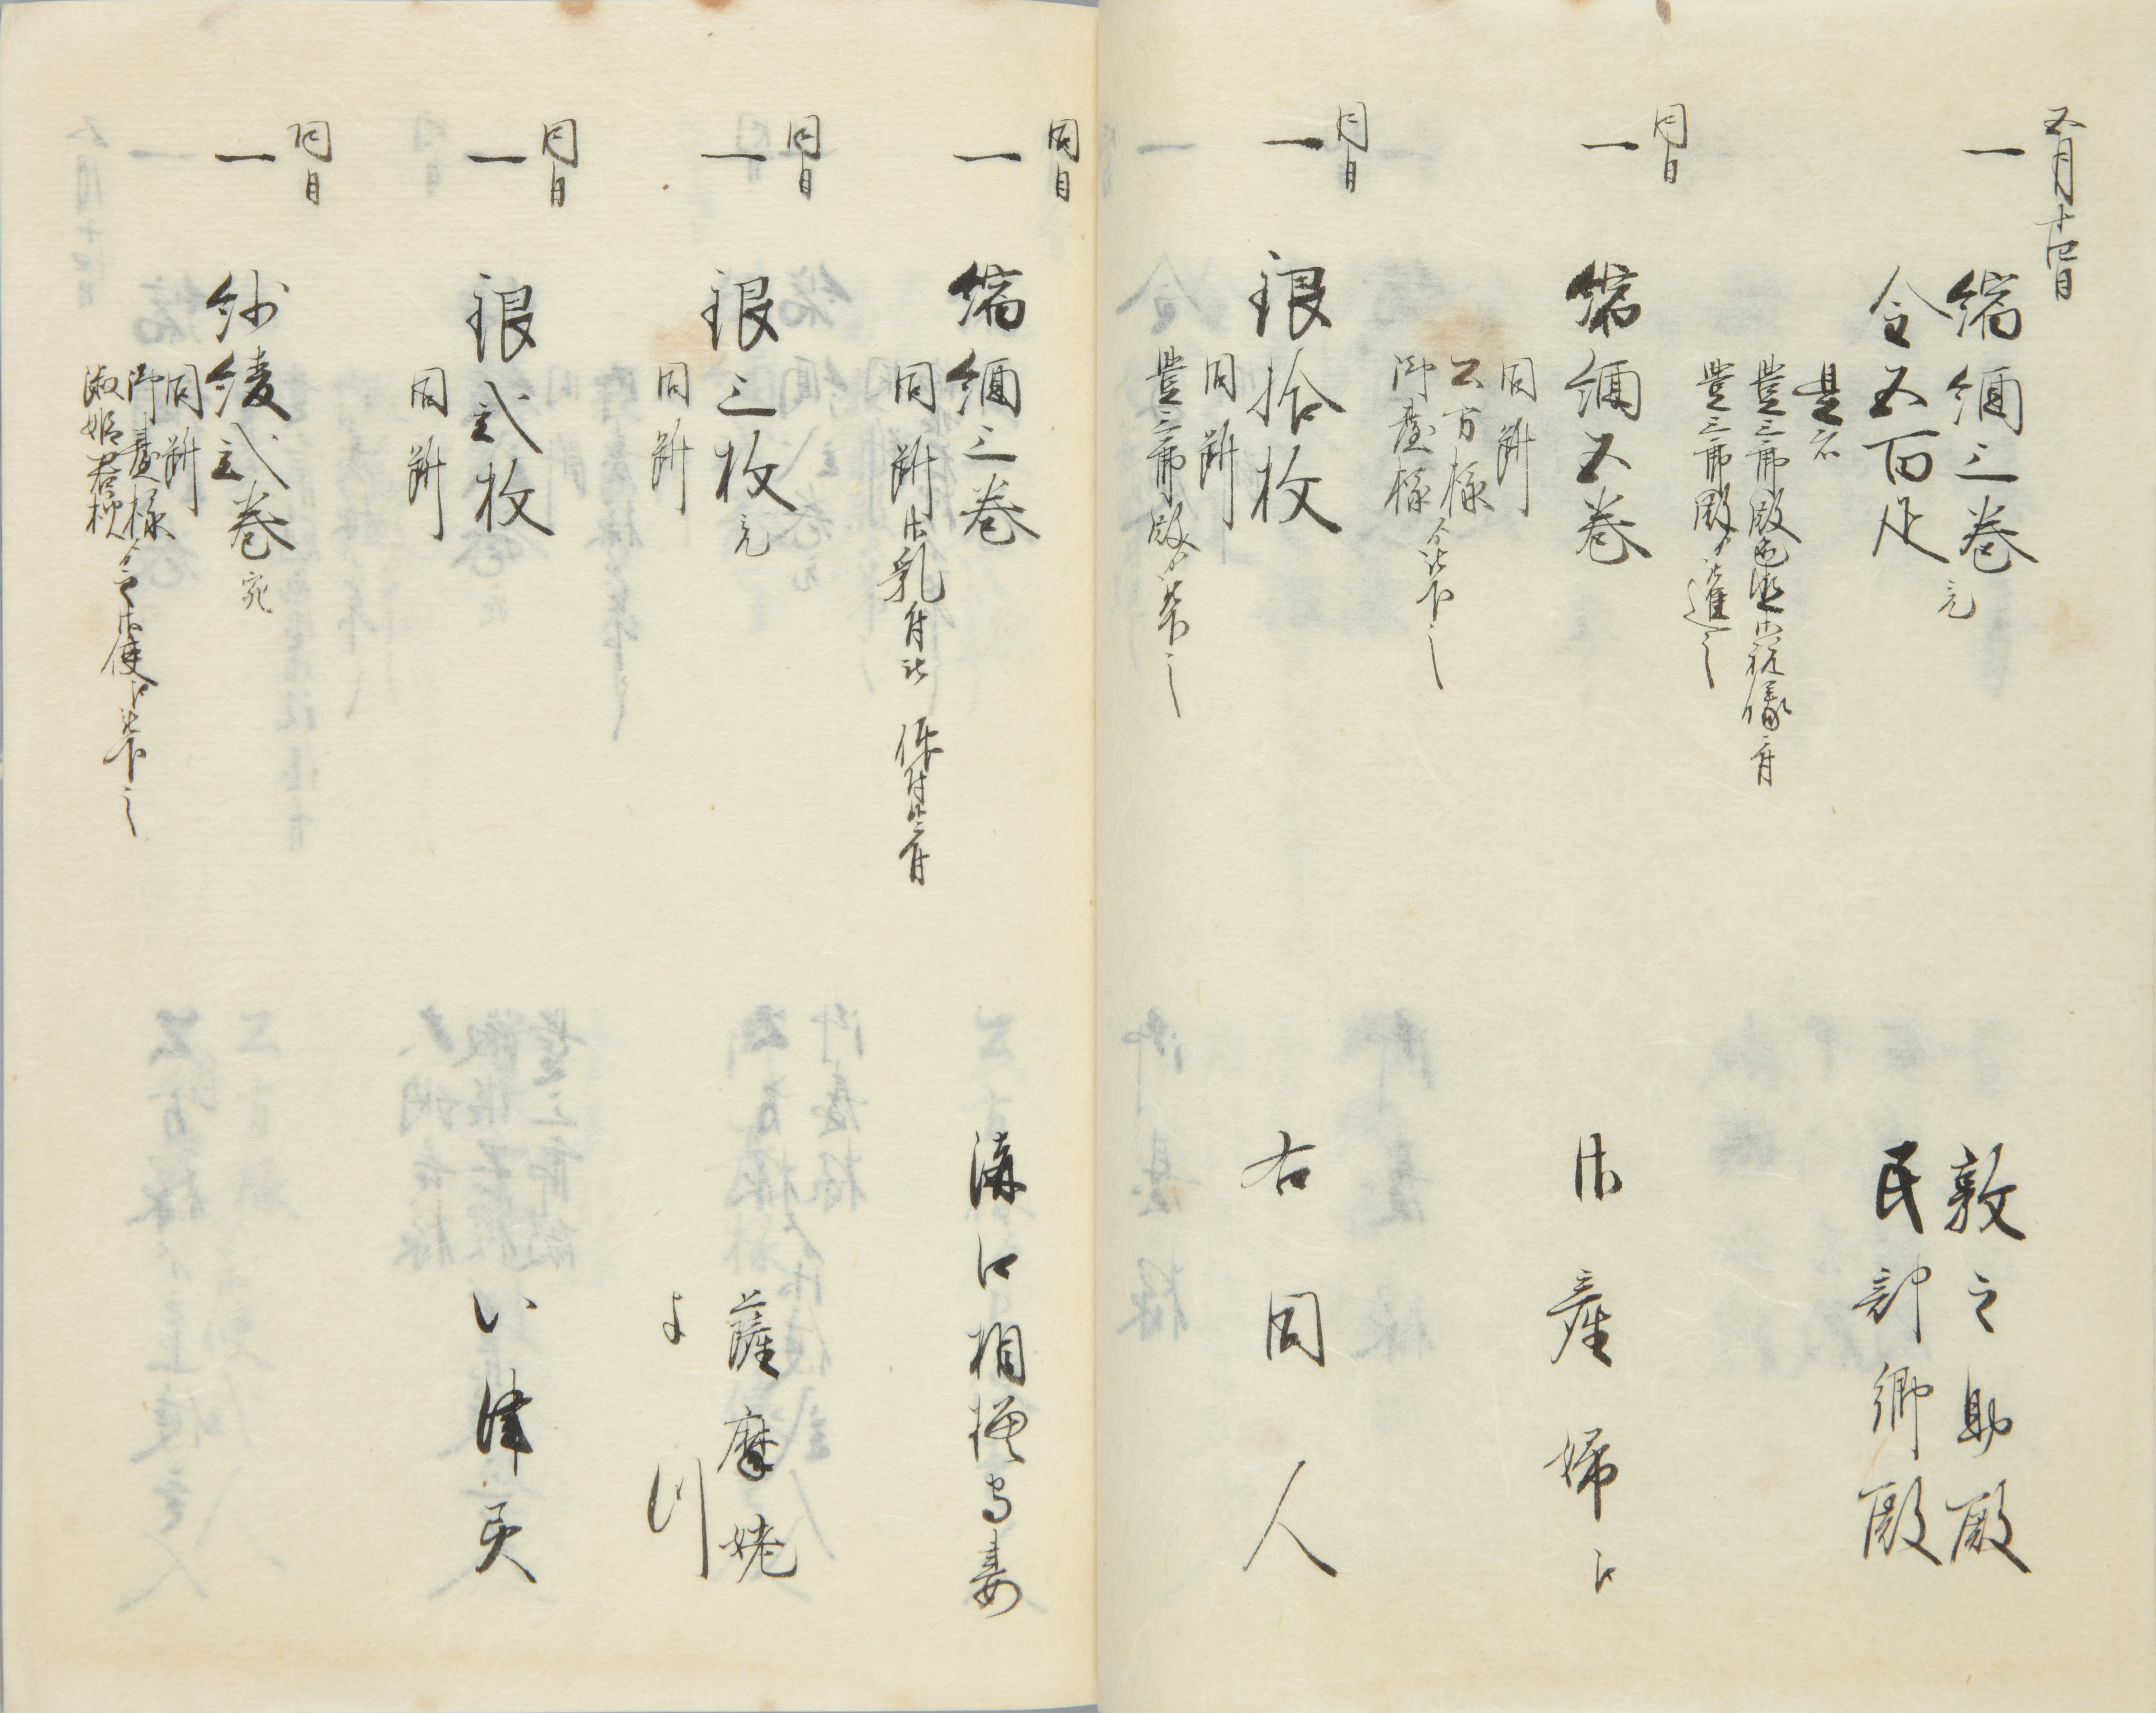 五月十四日
一 縮緬三巻充 敦之助殿
金五百疋 民部卿殿
是者
豊三郎殿色直御祝儀ニ付
豊三郎殿より被進之
同日
一 縮緬五巻 御産婦江
同断
公方様
御臺様より被下之
同日
一 銀拾枚 右同人
同断
豊三郎殿より被下之
同日
一 縮緬三巻 溝口相模守妻
同断御乳付被 仰付候ニ付
同日
一 銀三枚充 薩摩姥
同断 よ川
同日
一 銀弐枚 い津美
同断
同日
一 紗綾弐巻宛
同断
御臺様
淑姫君様より之御使江被下之